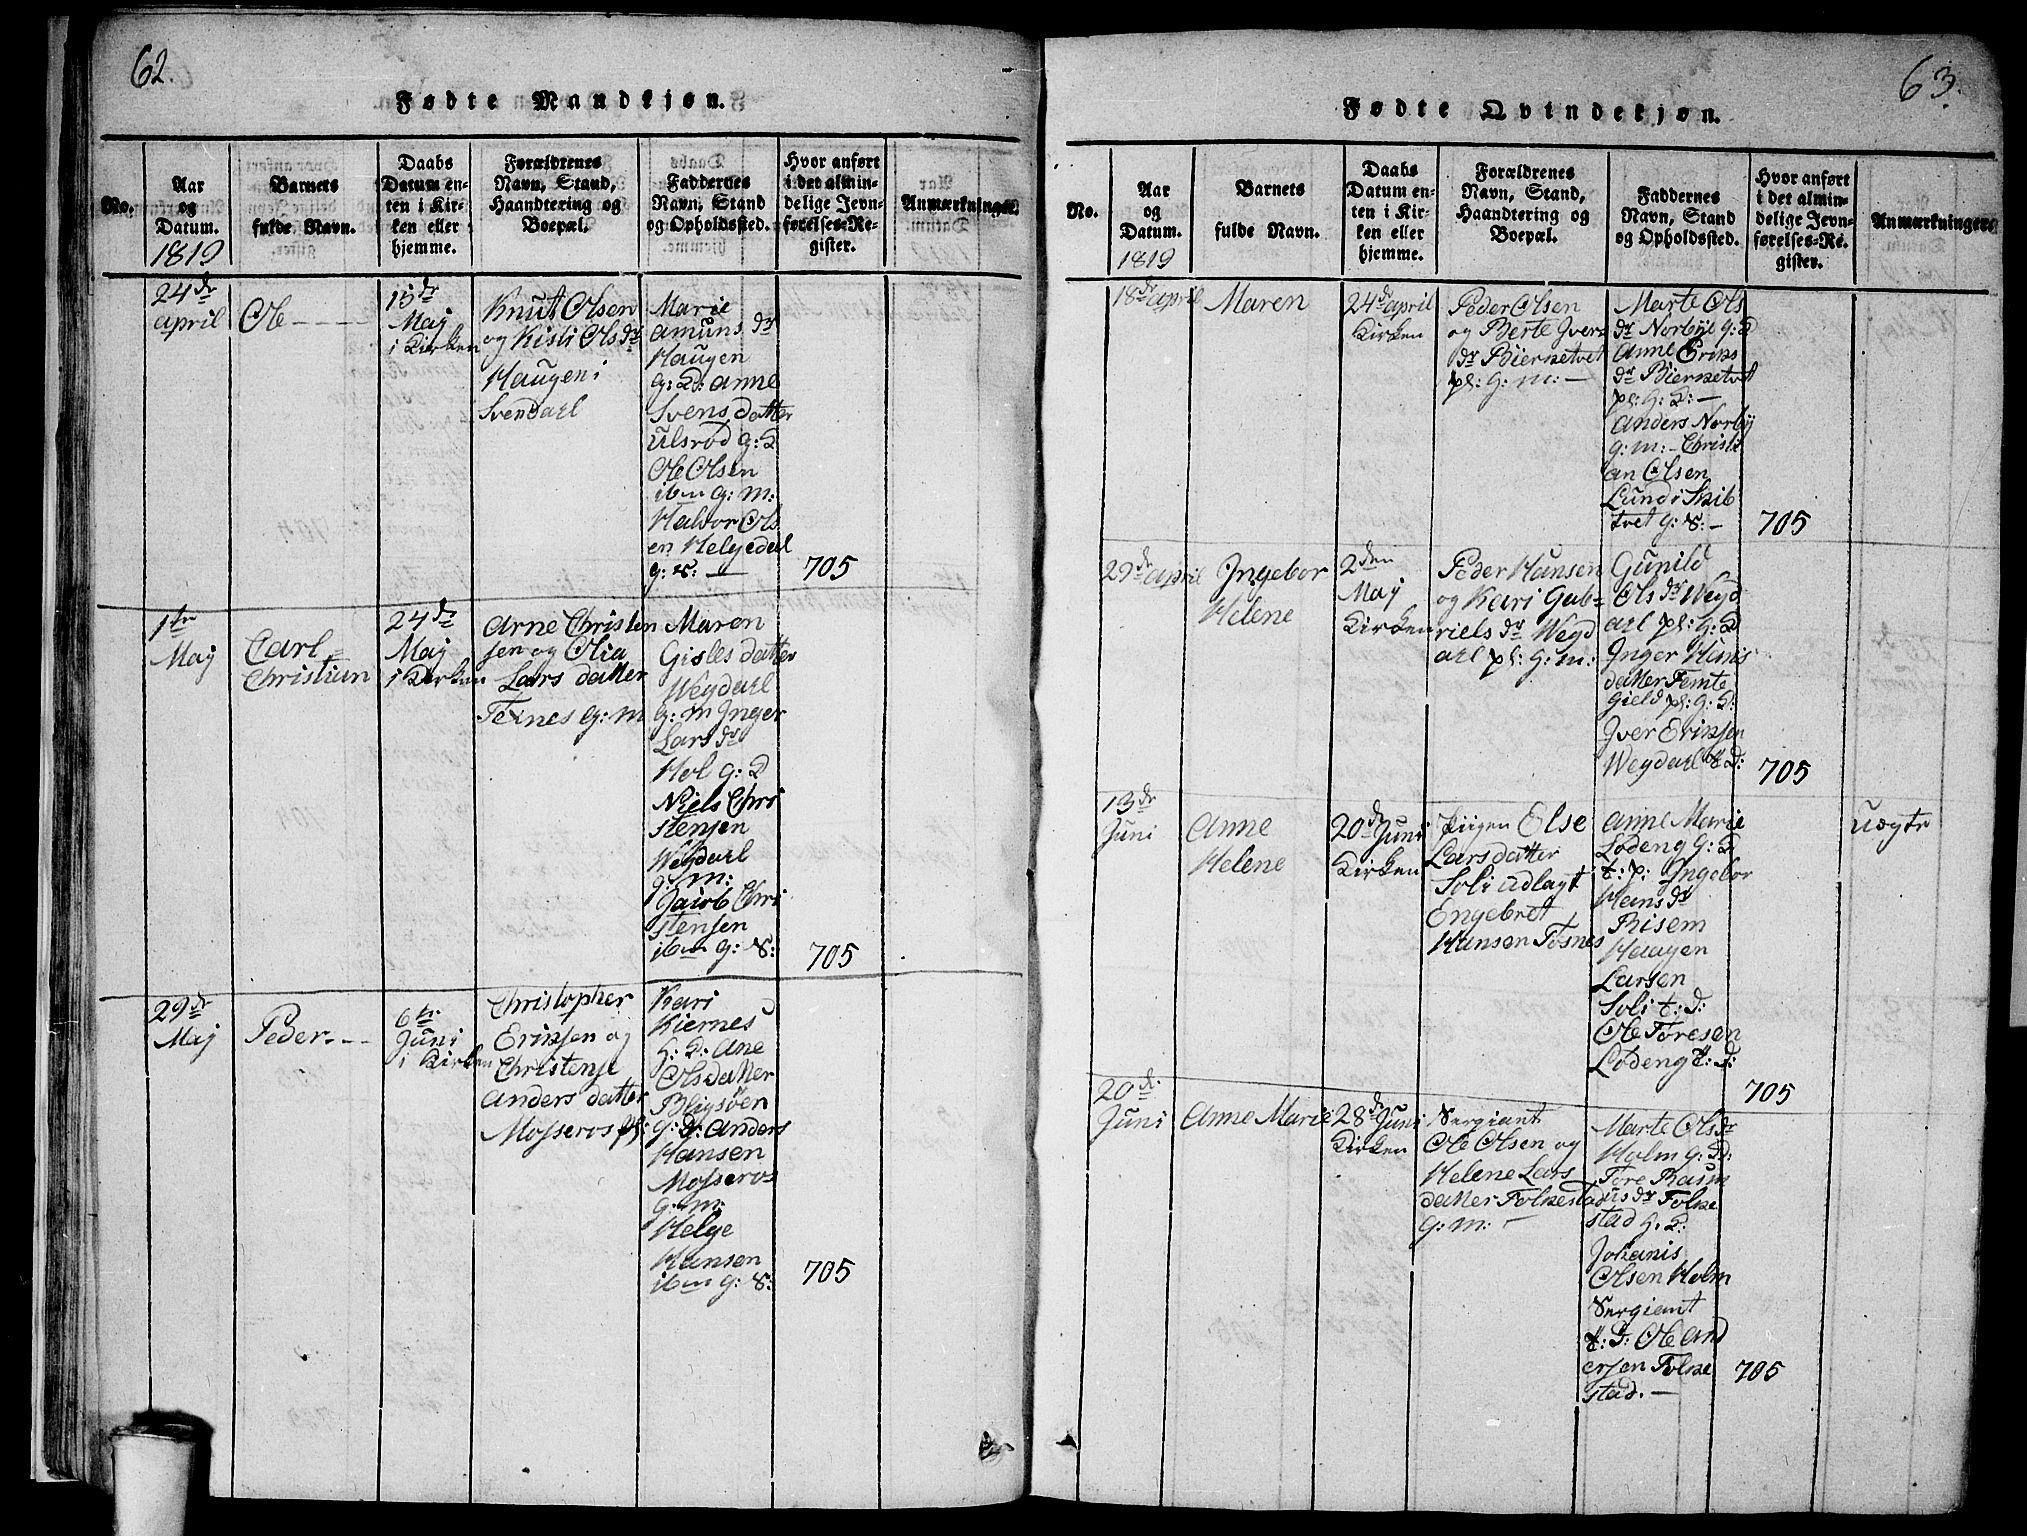 62.
Fødte Mandkjøn.
No.
Aar
og
Datum.
1819
Barnets
fulde Navn.
Daabs
Datum en-
ten i Kir-
ken eller
hjemme.
Forældrenes
Navn, Stand,
Haandtering og
Boepæl.
Faddernes
Navn, Stand
og Opholdssted.
Hvor anført
i det almin-
delige Jevn-
førelses-Re-
gister.
Anmærkninger.
24de
april
Ole
15de
Maj
i Kirken
Knut Olsen
og Kisti Ols dr
Haugen i
Svendal
Marie
amuns dr
Haugen
g: Q: anne
Svens datter
Ulsrød g: Q
Ole Olsen
ibm g: m:
Halvor Ols
en Helgedal
g: K: —
705
1te
Maj
Carl
Christian
24de
Maj
i Kirken
Arne Christen
sen og Olia
Lars datter
Texnes g: m
Maren
Gisles datter
Wegdarl
g: m Inger
Lars dr
Hol g: Q
Niels Chri
stensen
Wegdarl
g: m:
Jacob Chri
stensen
ibm g: K:
705
29de
Maj
Peder
6te
Juni
i Kirken
Christopher
Eriksen og
Christense
anders datter
Mosseros pl:
Kari
Kiernes
g: Q: ane
Olsdatter
Bligsøen
g: Q: anders
Hansen
Mosseros
g: m:
Helge
Hansen
ibm g: K:
705
63.
Fødte Qvindekjøn.
No.
Aar
og
Datum.
1819
Barnets
fulde Navn.
Daabs
Datum en-
ten i Kir-
ken eller
hjemme.
Forældrenes
Navn, Stand,
Haandtering og
Boepæl.
Faddernes
Navn, Stand
og Opholdssted.
Hvor anført
i det almin-
delige Jevn-
førelses-Re-
gister.
Anmærkninger.
18de april
Maren
24de april
Kirken
Peder Olsen
og Berte Ivers
dr Biernetvet
pl: g: m: —
Marte Ols
dr Norbye g: Q
Anne Eriks
dr Biernetvet
pl: g: Q: —
Anders Norby
g: m: — Christi
an Olsen
Lund i Skib
tvet g: K: —
705
29de april
Ingebor
Helene
2den
Maj
Kirken
Peder Hansen
og Kari Gab-
riels dr Wegd
arl pl: g: m:
Gunild
Ols dr Wegd
arl pl: g: Q
Inger Hans
datter Femte
gield pl: g: Q:
Iver Eriksen
Wegdarl
705
13de
Juni
Anne
Helene
20de Juni
Kirken
Piigen Else
Larsdatter
Soli udlagt
Engebret
Hansen Tosnes
Anne Marie
Lodeng g: Q
t: p: Ingebor
Hans dr
Risem
Haagen
Larsen
Soli t: d:
Ole Toresen
Lodeng t: d:
705
uægte
20de
Juni
Anne Marie
28de Juni
Kirken
Sergiant
Ole Olsen og
Helene Lars
datter Folkestad
g: m: —
Marte Ols dr
Holm g: Q:
Tore Rasm
us dr Folke
stad g: Q:
Johanis
Olsen Holm
Sergiant
t: d: Ole And
ersen Folke
stad. —
705